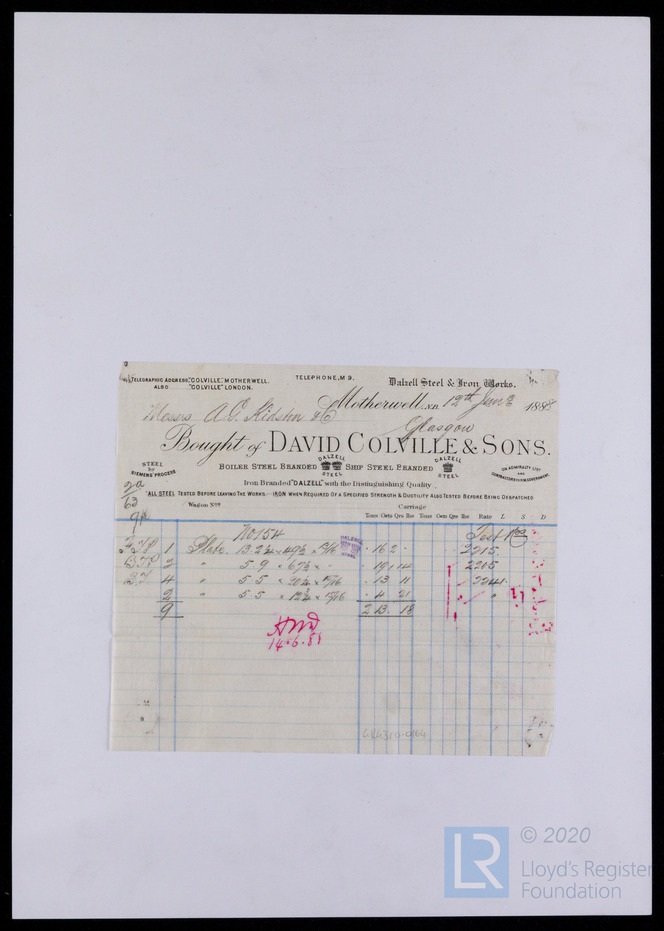 TELEGRAPHIC ADDRESS, "COLVILLE", MOTHERWELL.
ALSO "COLVILLE" LONDON.
TELEPHONE, M 9.
Dalzell Steel & Iron Works.
Motherwell, N.B. 12th June 1888
Messrs A.G. Kidston & Co
Glasgow
Bought of DAVID COLVILLE & SONS.
STEEL by SIEMENS PROCESS
BOILER STEEL BRANDED DALZELL STEEL SHIP STEEL BRANDED DALZELL STEEL
ON ADMIRALTY LIST AND CONTRACTORS TO H.M. GOVERNMENT
Iron Branded "DALZELL" with the Distinguishing Quality.
ALL STEEL TESTED BEFORE LEAVING THE WORKS. IRON WHEN REQUIRED OF A SPECIFIED STRENGTH & DUCTILITY ALSO TESTED BEFORE BEING DESPATCHED
63
Wagon Nos
Carriage
Tons Cwts Qrs lbs Tons Cwts Qrs lbs Rate L S D
No 154
Test Nos
1 Plate 13.2¼ × 49½ × 16 2 2215
2 " 5.9 × 67½ × " 19 14 2205
4 " 5.5 × 13 11 2241
2 " 5.5 × 4 21 "
9 2 13 18
14.6.88
© 2020
Lloyd's Register
Foundation
LR